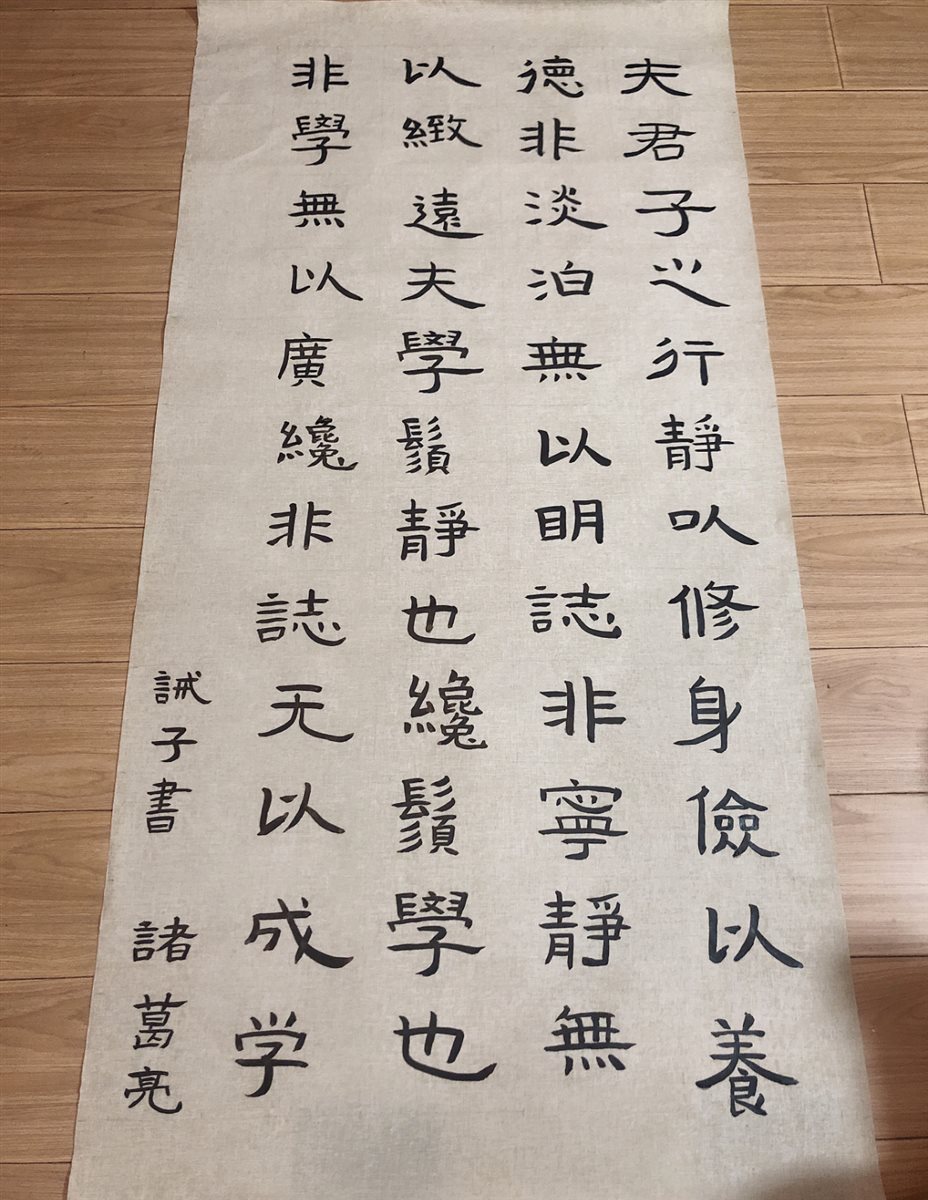 夫君子之行靜以修身儉以養
德非淡泊無以明誌非寧靜無
以緻遠夫學鬚靜也纔鬚學也
非學無以廣纔非誌无以成学
誡子書 諸葛亮